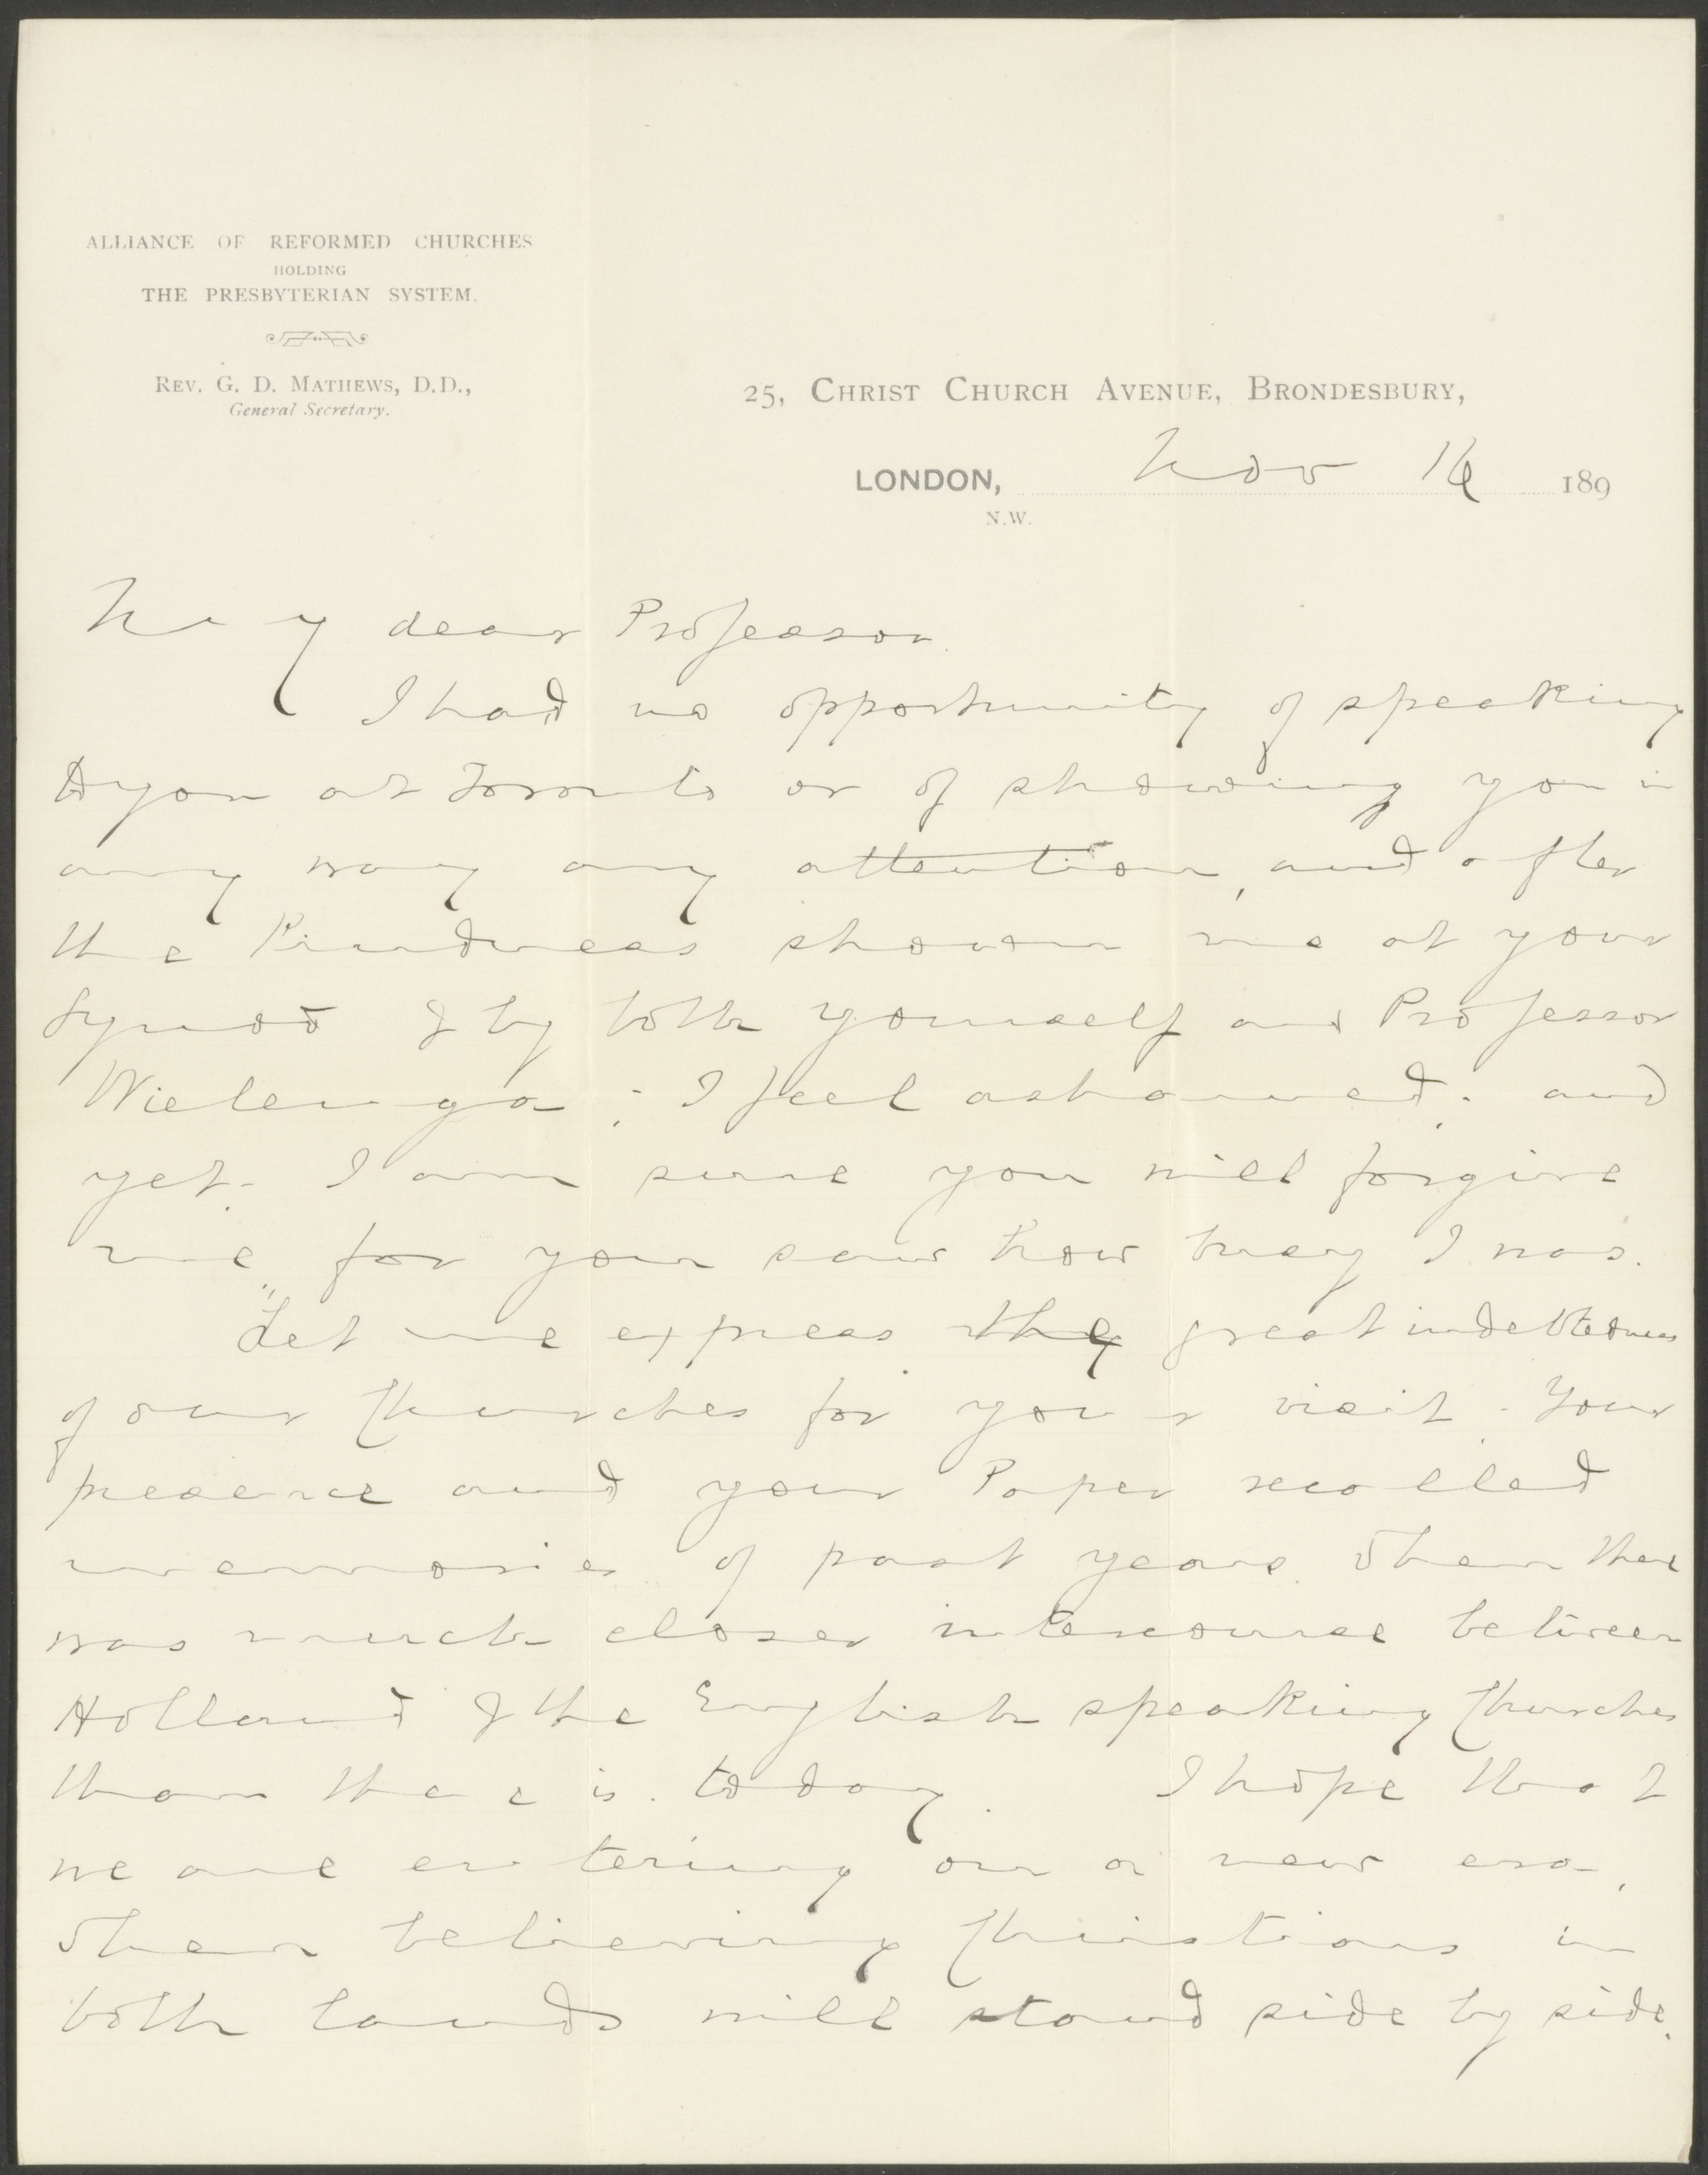 ALLIANCE OF REFORMED CHURCHES
HOLDING
THE PRESBYTERIAN SYSTEM.
REV. G. D. MATHEWS, D.D.,
General Secretary.
25, CHRIST CHURCH AVENUE, BRONDESBURY,
LONDON, Nov 189
N.W.
My dear Professor
I had no opportunity of speaking
to you at Toronto or of showing you in
any way any attention, and after
the kindness shown me at your
Synod & by both yourself and Professor
Wielenga; I feel ashamed; and
yet. I am sure you will forgive
me, for you saw how busy I was.
Let me express the great indebtedness
of our Churches for your visit. Your
presence and your Paper recalled
memories of past years when there
was much closer intercourse between
Holland & the English speaking Churches
than there is today. I hope that
we are entering on a new era,
when believing Christians in
both lands will stand side by side.